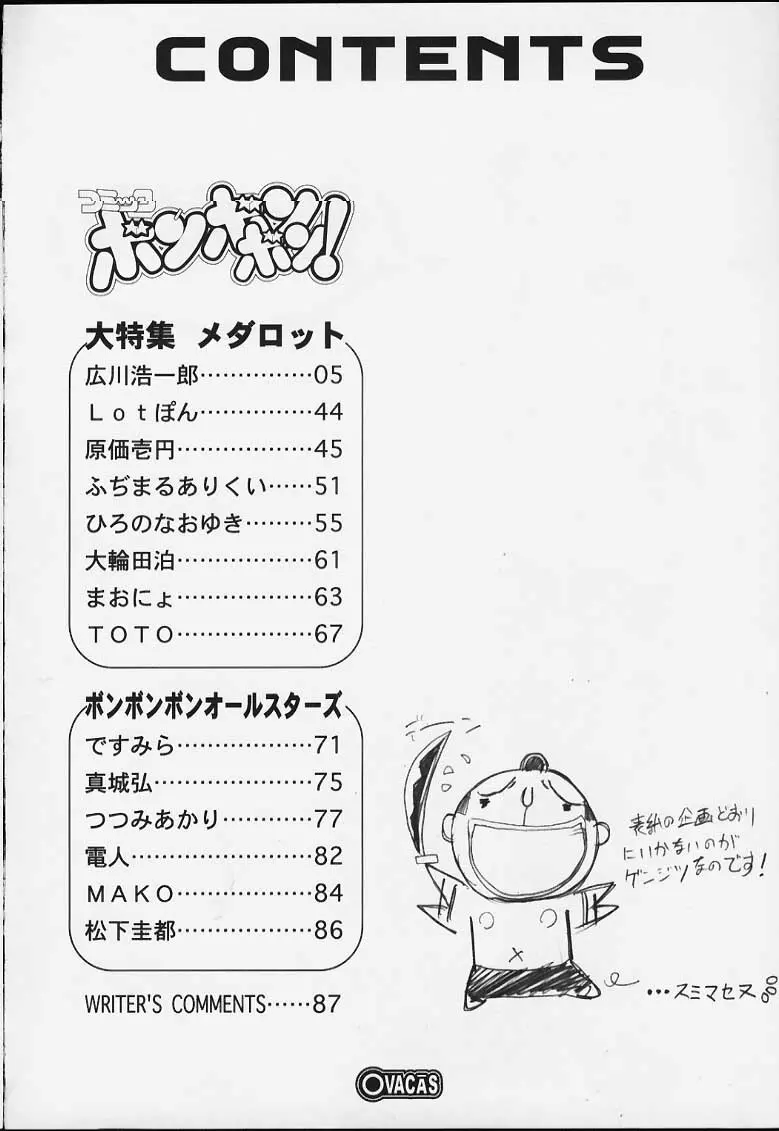 CONTENTS
コミック
ボンボンボン!
大特集 メダロット
広川浩一郎……………05
Lotぽん……………44
原価壱円………………45
ふぢまるありくい……51
ひろのなおゆき………55
大輪田泊………………61
まおにょ………………63
TOTO………………67
ボンボンボンオールスターズ
ですみら………………71
真城弘…………………75
つつみあかり…………77
電人……………………82
MAKO………………84
松下圭都………………86
WRITER'S COMMENTS……87
表紙の企画どおり
にいかないのが
ゲンジツなのです!
…スミマセヌ。。。
OVACAS